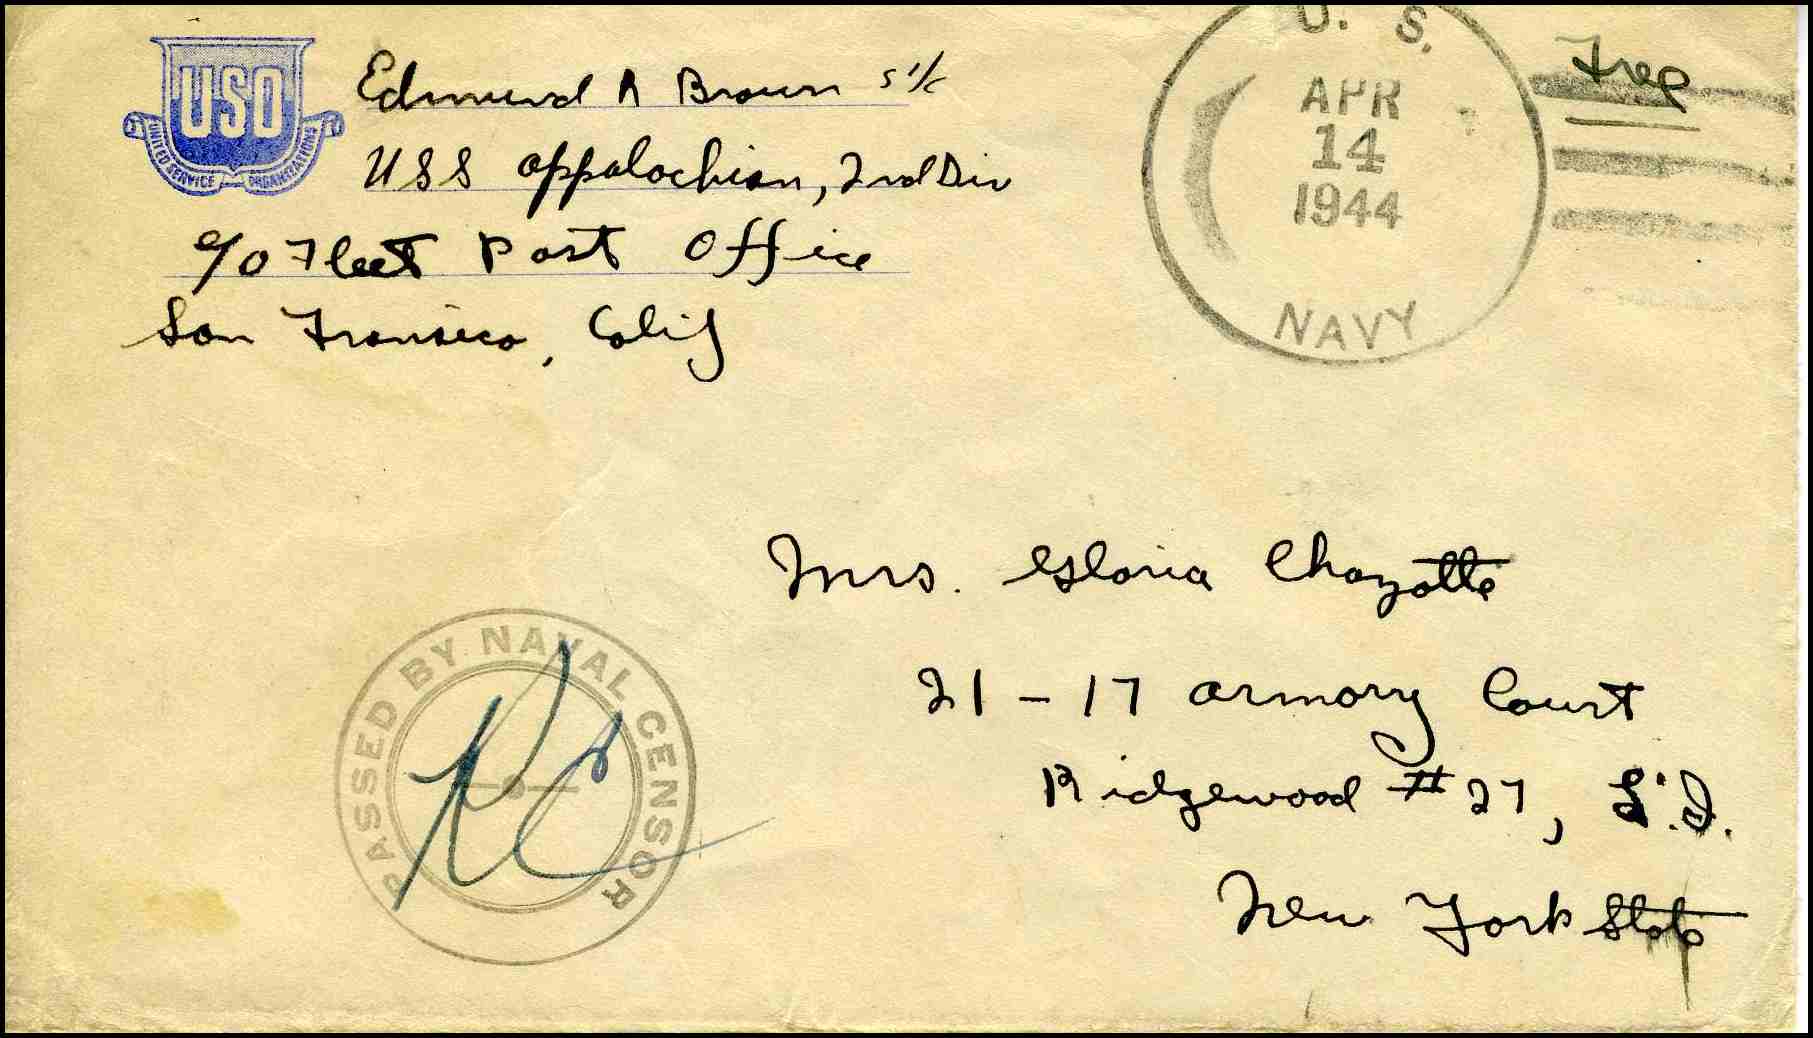 USO
UNITED SERVICE ORGANIZATIONS
Edmund A Brown S 1/c
USS Appalachian, 2nd Div
c/o Fleet Post Office
San Fransico, Calif
U. S.
APR
14
1944
NAVY
Free
Mrs. Gloria Chazotte
21-17 Armory Court
Ridgewood #27, L.I.
New York State
PASSED BY NAVAL CENSOR